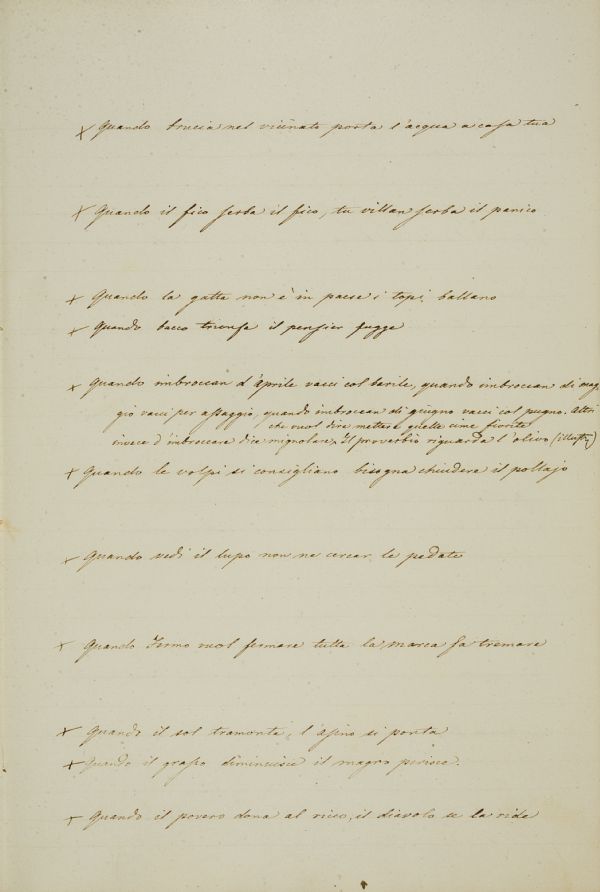 × Quando brucia nel vicinato porta l'acqua a casa tua
× Quando il fico serba il fico, tu villan serba il panico
× Quando la gatta non è in paese i topi ballano
× Quando bacco trionfa il pensier fugge
× Quando imbroccan d'Aprile vacci col barile, quando imbroccan di mag,
gio vacci per assaggio, quando imbroccan di giugno vacci col pugno. Altri
che vuol dire mettere quelle cime fiorite
invece d'imbroccare dice mignolare. Il proverbio riguarda l'olivo
× Quando le volpi si consigliano bisogna chiudere il pollajo
× Quando vedi il lupo non ne cercar le pedate
× Quando Fermo vuol fermare tutta la marca fa tremare
× Quando il sol tramonta, l'asino si ponta
× Quando il grasso diminuisce il magro perisce.
× Quando il povero dona al ricco, il diavolo se la ride